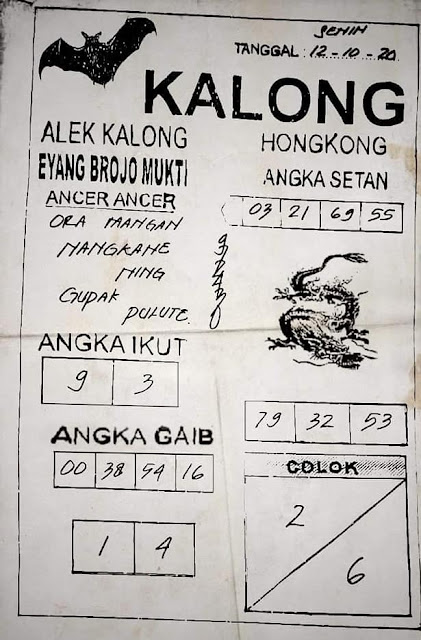 SENIN
TANGGAL : 12 - 10 - 20
KALONG
ALEK KALONG
EYANG BROJO MUKTI
ANCER ANCER
ORA MANGAN
NANGKANE
NING
GUPAK
PULUTE
HONGKONG
ANGKA SETAN
03 21 69 55
ANGKA IKUT
9 3
79 32 53
ANGKA GAIB
00 38 94 16
1 4
COLOK
2
6